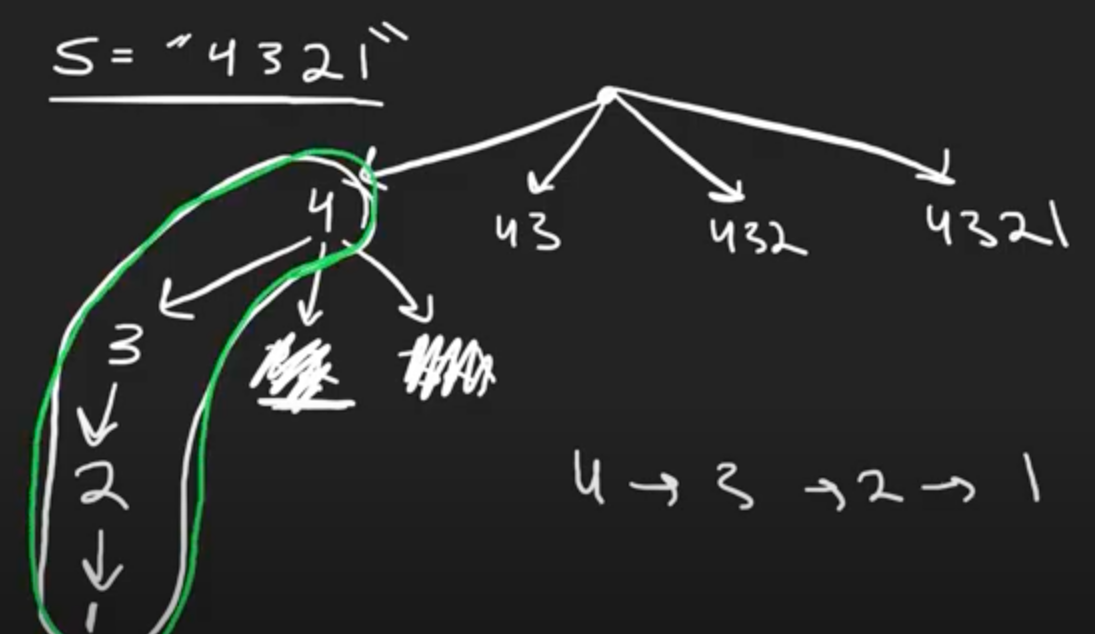 S = "4321"
4 43 432 4321
3
2
4 → 3 → 2 → 1
1